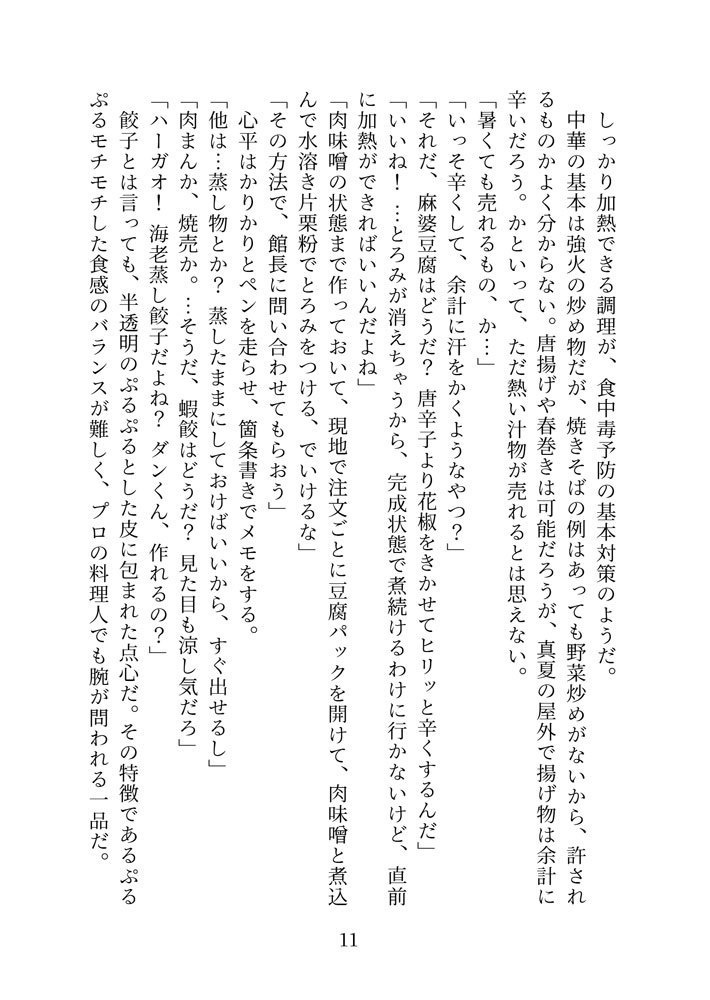 しっかり加熱できる調理が、食中毒予防の基本対策のようだ。
中華の基本は強火の炒め物だが、焼きそばの例はあっても野菜炒めがないから、許され
るものかよく分からない。唐揚げや春巻きは可能だろうが、真夏の屋外で揚げ物は余計に
辛いだろう。かといって、ただ熱い汁物が売れるとは思えない。
「暑くても売れるもの、か…」
「いっそ辛くして、余計に汗をかくようなやつ？」
「それだ、麻婆豆腐はどうだ？　唐辛子より花椒をきかせてヒリッと辛くするんだ」
「いいね！　…とろみが消えちゃうから、完成状態で煮続けるわけに行かないけど、直前
に加熱ができればいいんだよね」
「肉味噌の状態まで作っておいて、現地で注文ごとに豆腐パックを開けて、肉味噌と煮込
んで水溶き片栗粉でとろみをつける、でいけるな」
「その方法で、館長に問い合わせてもらおう」
心平はかりかりとペンを走らせ、箇条書きでメモをする。
「他は…蒸し物とか？　蒸したままにしておけばいいから、すぐ出せるし」
「肉まんか、焼売か。…そうだ、蝦餃はどうだ？　見た目も涼し気だろ」
「ハーガオ！　海老蒸し餃子だよね？　ダンくん、作れるの？」
餃子とは言っても、半透明のぷるぷるとした皮に包まれた点心だ。その特徴であるぷる
ぷるモチモチした食感のバランスが難しく、プロの料理人でも腕が問われる一品だ。
11